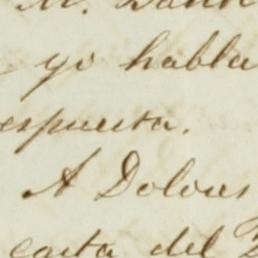 yo habla
espuesta.
A Dolores
carta del